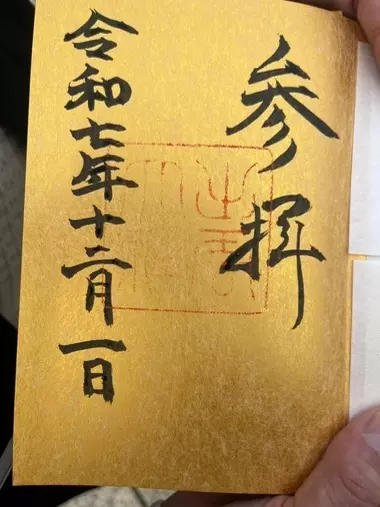 参拝
令和七年十二月一日